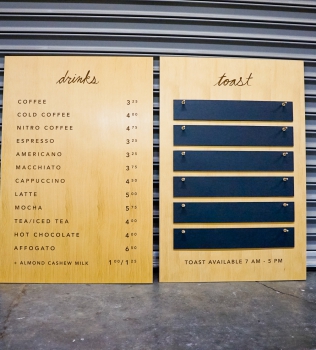 drinks
COFFEE 3
COLD COFFEE 4
NITRO COFFEE 4
ESPRESSO 3
AMERICANO 3
MACCHIATO 3
CAPPUCCINO 4
LATTE 5
MOCHA 5
TEA/ICED TEA 4
HOT CHOCOLATE 4
AFFOGATO 6
+ ALMOND CASHEW MILK
toast
TOAST AVAILABLE 7 AM - 3 PM